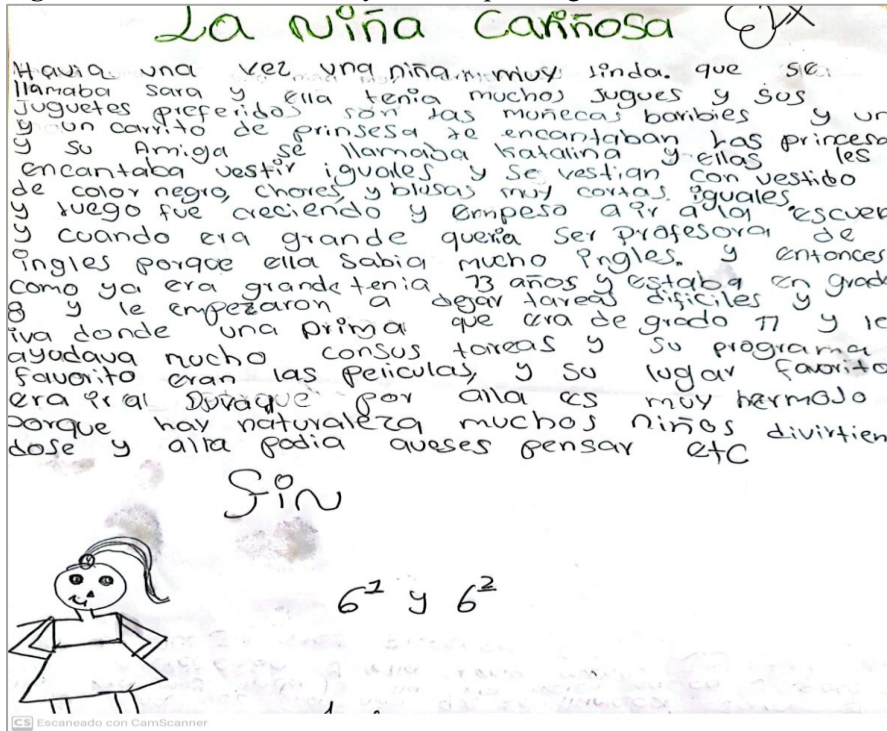 La Niña Cariñosa
Havia una vez una niña muy linda. que se
llamaba Sara y ella tenia muchos jugues y sus
juguetes preferidos son las muñecas baribies y un
y un carrito de prinsesa le encantaban las princesa
y su Amiga se llamaba Katalina y ellas les
encantaba vestir iguales y se vestian con vestido
de color negro, chores, y blusas muy cortas iguales
y luego fue creciendo y empeso a ir a la escuel
y cuando era grande queria ser profesora de
ingles porque ella sabia mucho ingles. y entonces
como ya era grande tenia 13 años y estaba en grado
8 y le empezaron a dejar tareas dificiles y
iva donde una prima que era de grado 11 y le
ayudava mucho consus tareas y su programa
favorito eran las peliculas, y su lugar favorito
era ir al por alla es muy hermoso
porque hay naturaleza muchos niños divirtien
dose y alla podia aveses pensar etc
Fin
6¹ y 6²
CS Escaneado con CamScanner